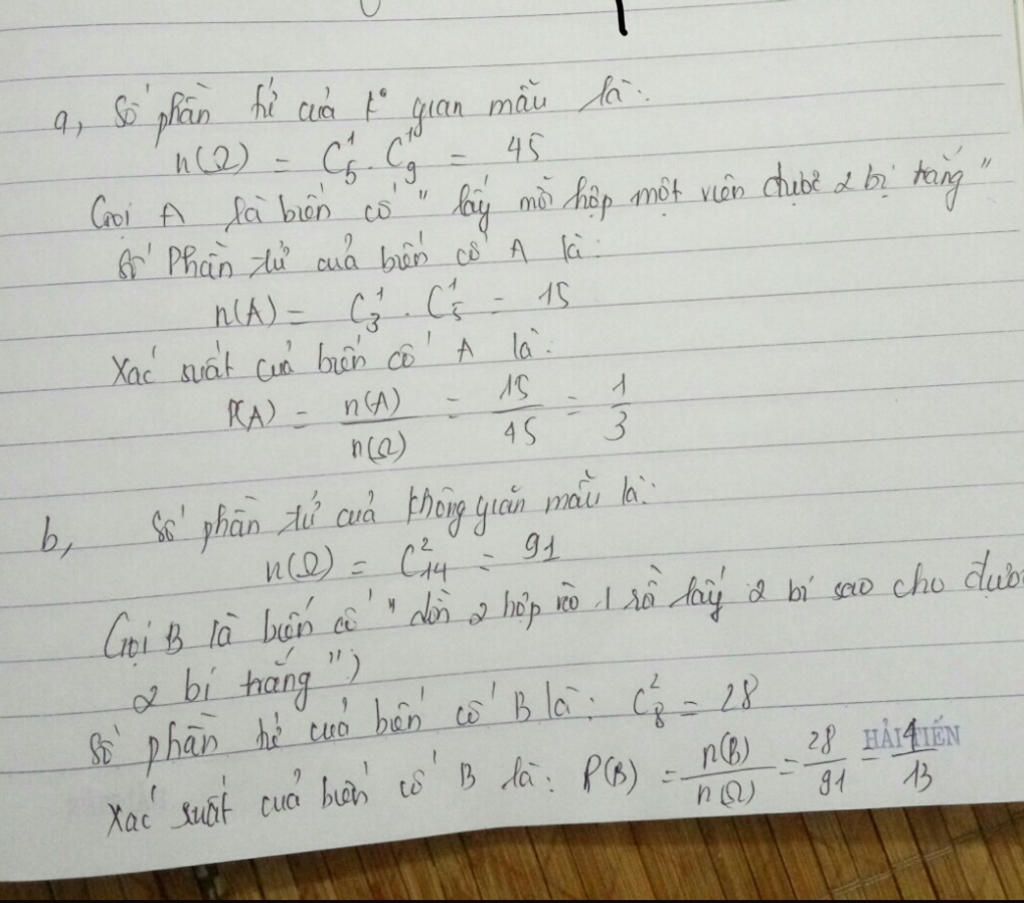 a, Số phần tử của k° gian mẫu là:
n(Ω) = C₅¹ . C₉¹ = 45
Gọi A là biến cố " lấy mỗi hộp một viên được 2 bi trắng "
Số Phần tử của biến cố A là:
n(A) = C₃¹ . C₅¹ = 15
Xác suất của biến cố A là:
P(A) = n(A)/n(Ω) = 15/45 = 1/3
b, Số phần tử của không gian mẫu là:
n(Ω) = C₁₄² = 91
Gọi B là biến cố " dồn 2 hộp vào 1 rồi lấy 2 bi sao cho được
2 bi trắng ")
Số phần tử của biến cố B là: C₈² = 28
Xác suất của biến cố B là: P(B) = n(B)/n(Ω) = 28/91 = 4/13
HẢI TIẾN